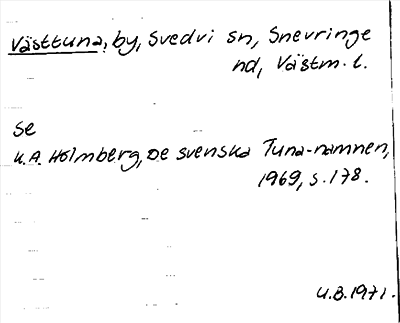 Västtuna, by, Svedvi sn, Snevringe
nd, Västm. l.
se
K.A. Holmberg, De svenska Tuna-namnen,
1969, s. 178.
U.B. 1971.